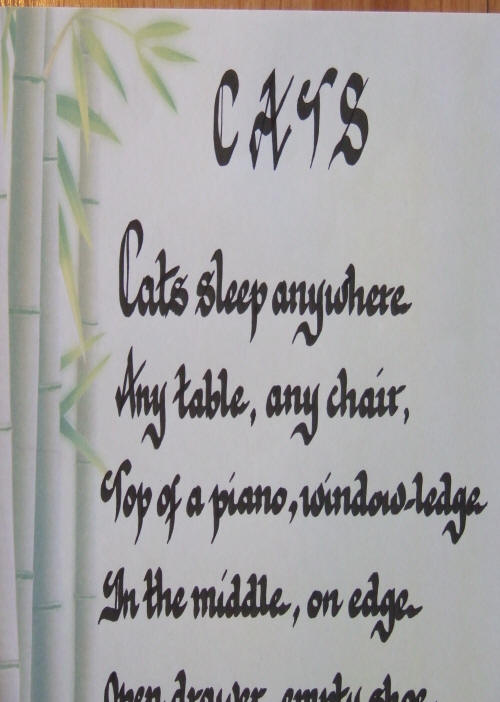 CATS
Cats sleep anywhere
Any table, any chair,
Top of a piano, window-ledge
In the middle, on edge
Open drawer, empty shoe